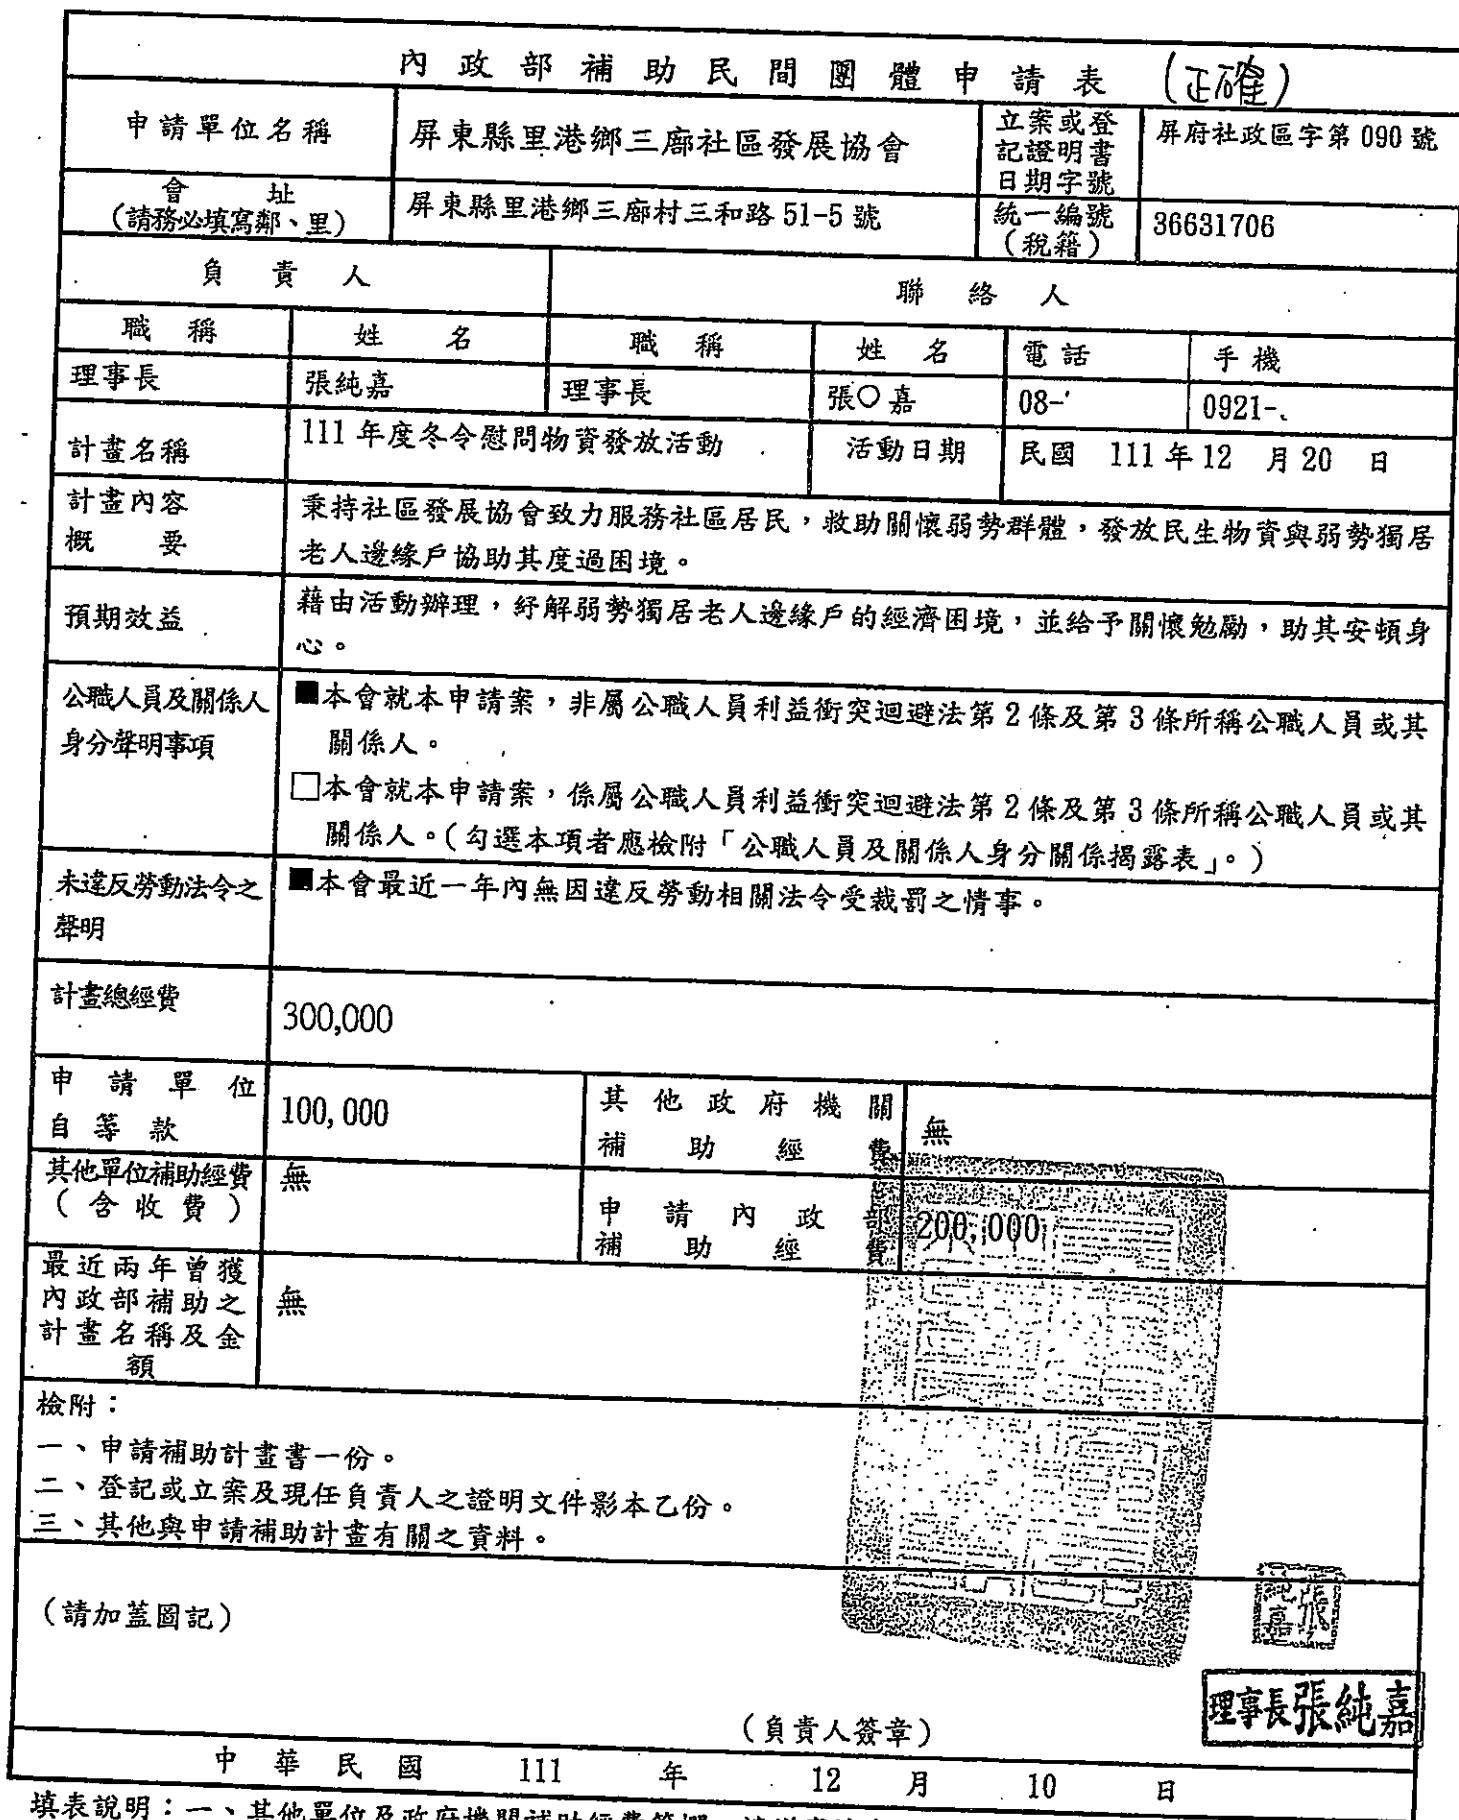 內政部補助民間團體申請表 (正確)
申請單位名稱 屏東縣里港鄉三廍社區發展協會 立案或登記證明書日期字號 屏府社政區字第 090 號
會址(請務必填寫鄰、里) 屏東縣里港鄉三廍村三和路 51-5 號 統一編號(稅籍) 36631706
負責人 聯絡人
職稱 姓名 職稱 姓名 電話 手機
理事長 張純嘉 理事長 張○嘉 08- 0921-
計畫名稱 111 年度冬令慰問物資發放活動 活動日期 民國 111 年 12 月 20 日
計畫內容概要
秉持社區發展協會致力服務社區居民，救助關懷弱勢群體，發放民生物資與弱勢獨居
老人邊緣戶協助其度過困境。
預期效益
藉由活動辦理，紓解弱勢獨居老人邊緣戶的經濟困境，並給予關懷勉勵，助其安頓身
心。
公職人員及關係人
身分聲明事項
■本會就本申請案，非屬公職人員利益衝突迴避法第 2 條及第 3 條所稱公職人員或其
關係人。
□本會就本申請案，係屬公職人員利益衝突迴避法第 2 條及第 3 條所稱公職人員或其
關係人。(勾選本項者應檢附「公職人員及關係人身分關係揭露表」。)
未違反勞動法令之
聲明
■本會最近一年內無因違反勞動相關法令受裁罰之情事。
計畫總經費 300,000
申請單位
自籌款
100,000
其他政府機關
補助經費
無
其他單位補助經費
(含收費)
無
申請內政部
補助經費
200,000
最近兩年曾獲
內政部補助之
計畫名稱及金
額
無
檢附：
一、申請補助計畫書一份。
二、登記或立案及現任負責人之證明文件影本乙份。
三、其他與申請補助計畫有關之資料。
(請加蓋圖記)
張純嘉
理事長張純嘉
(負責人簽章)
中華民國 111 年 12 月 10 日
填表說明：一、其他單位及政府機關補助經費等欄